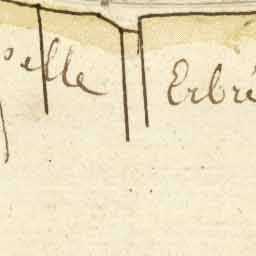 elle Erbré